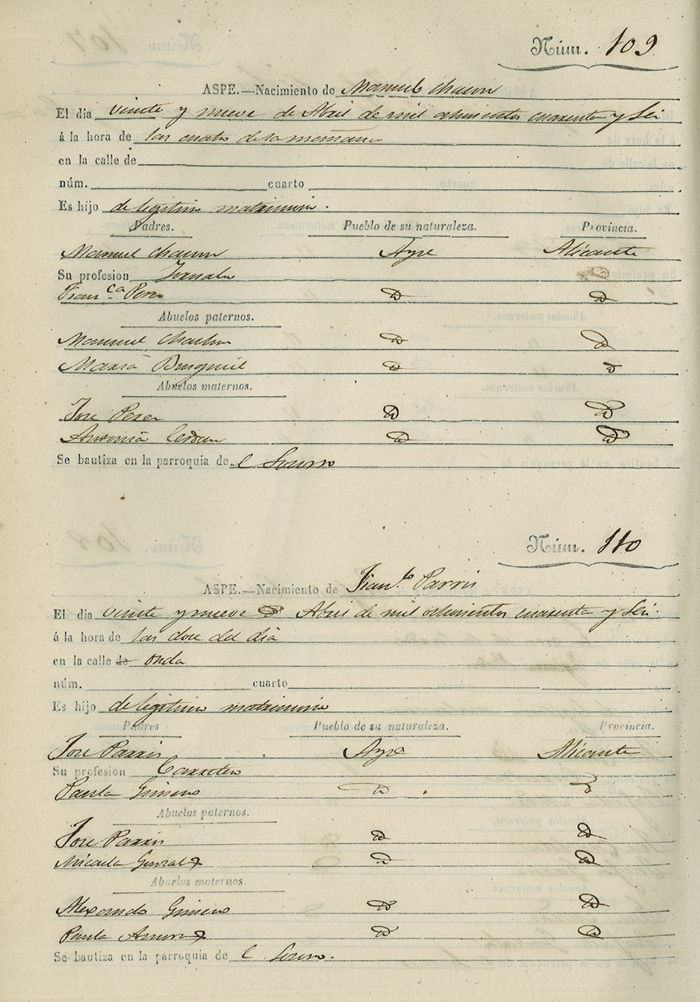 Núm. 109
ASPE.—Nacimiento de Manuel
El dia veinte y nueve de Abril de mil ochocientos cuarenta y Sei
á la hora de las cuatro de la mañana
en la calle de
núm. cuarto
Es hijo de legitimo matrimonio.
Padres. Pueblo de su naturaleza. Provincia.
Manuel Aspe Alicante
Su profesion
Fran.ca Perez D D
Abuelos paternos.
Manuel D D
Maria D D
Abuelos maternos.
Jose Perez D D
Antonia Cerdan D D
Se bautiza en la parroquia de l Socorro
Núm. 110
ASPE.—Nacimiento de Fran.co
El dia veinte y nueve D Abril de mil ochocientos cuarenta y Sei
á la hora de las doce del dia
en la calle de onda
núm. cuarto
Es hijo de legitimo matrimonio
Padres Pueblo de su naturaleza. Provincia.
Jose Aspe Alicante
Su profesion Carretero
Paula Gimeno D D
Abuelos paternos.
Jose D D
Micaela D D
Abuelos maternos.
Alexandro Gimeno D D
Paula D D
Se bautiza en la parroquia de l Socorro.